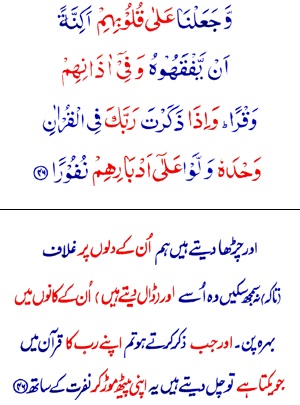 وَّجَعَلْنَا عَلٰى قُلُوْبِهِمْ اَكِنَّةً
اَنْ يَّفْقَهُوْهُ وَفِيْٓ اٰذَانِهِمْ
وَقْرًا ؕ وَاِذَا ذَكَرْتَ رَبَّكَ فِى الْقُرْاٰنِ
وَحْدَهٗ وَلَّوْا عَلٰٓى اَدْبَارِهِمْ نُفُوْرًا ﴿۴۶﴾
اور چڑھا دیتے ہیں ہم اُن کے دلوں پر غلاف
(تاکہ) نہ سمجھ سکیں وہ اُسے اور (ڈال دیتے ہیں) اُن کے کانوں میں
بہرہ پن۔ اور جب ذکر کرتے ہو تم اپنے رب کا قرآن میں
جو یکتا ہے تو چل دیتے ہیں یہ اپنی پیٹھ موڑ کر نفرت کے ساتھ ﴿۴۶﴾